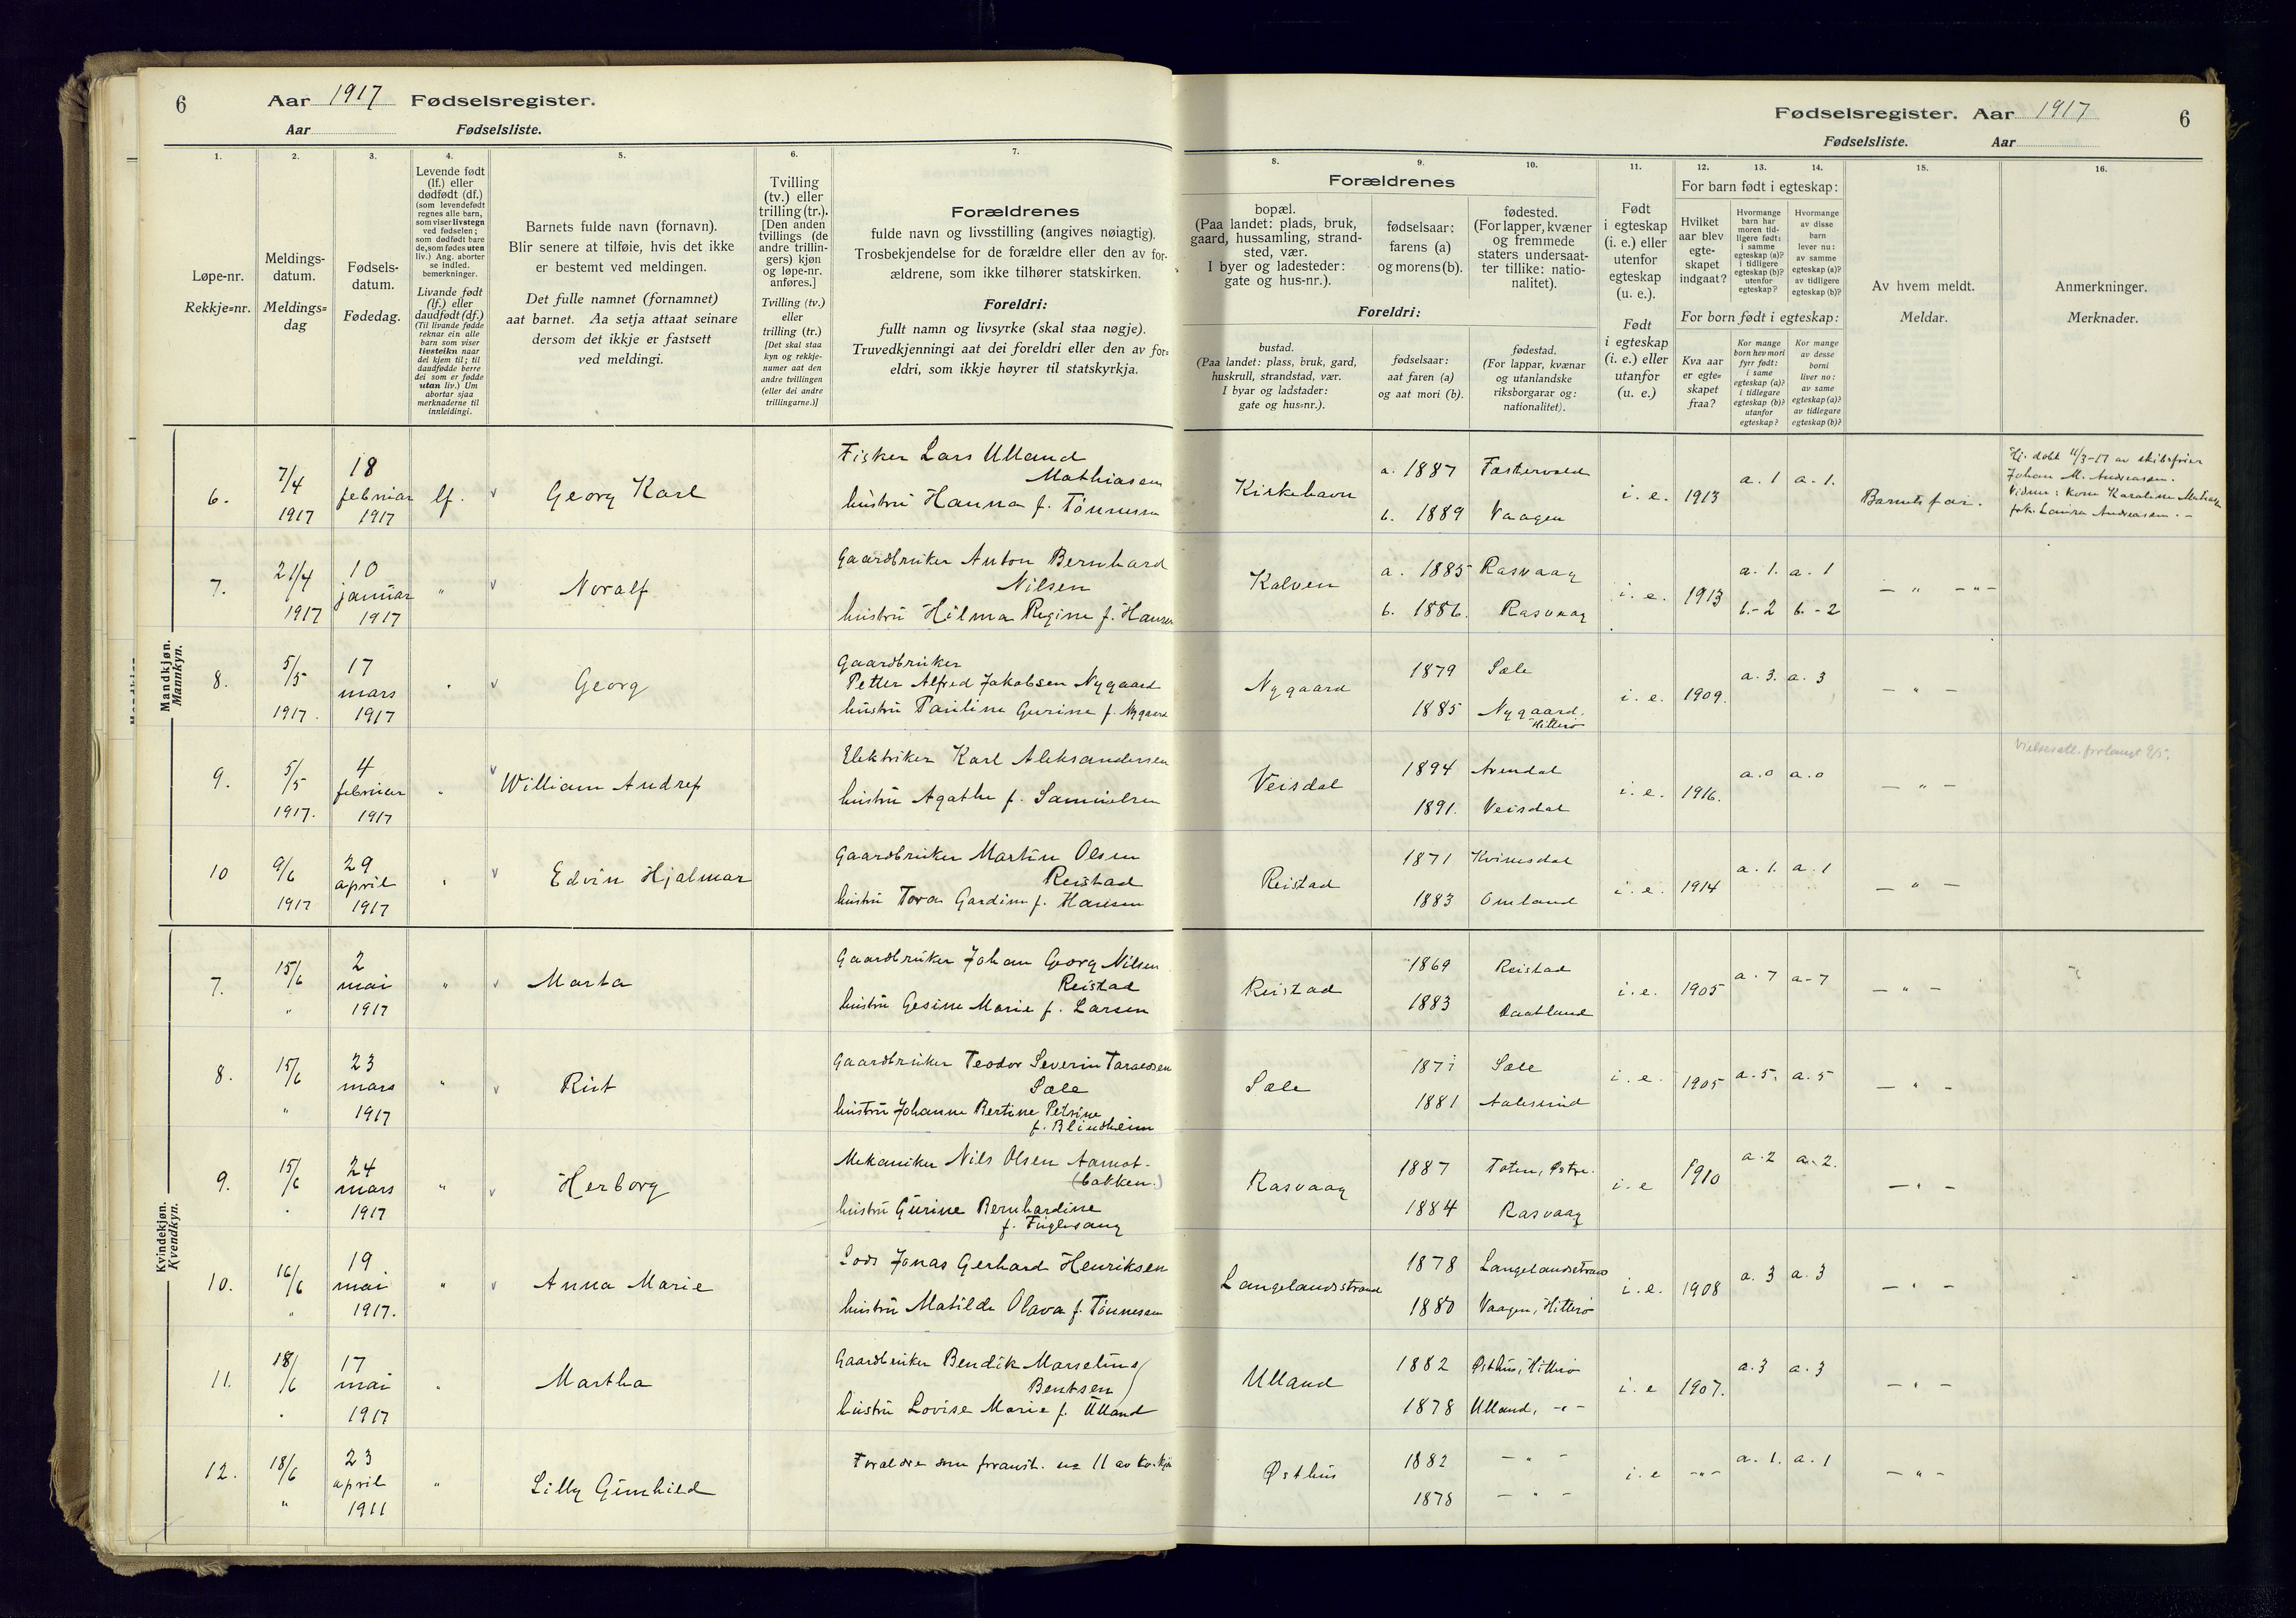 6 Aar 1917 Fødselsregister.
Aar Fødselsliste.
1.
2.
3.
4.
5.
6.
7.
Løpe-nr.
Rekkje=nr.
Meldings-
datum.
Meldings=
dag
Fødsels-
datum.
Fødedag.
Levende født
(lf.) eller
dødfødt (df.)
(som levendefødt
regnes alle barn,
som viser livstegn
ved fødselen;
som dødfødt bare
de, som fødes uten
liv.) Ang. aborter
se indled.
bemerkninger.
Livande født
(lf.) eller
daudfødt (df.)
(Til livande fødde
reknar ein alle
barn som viser
livsteikn naar
dei kjem til; til
daudfødde berre
dei som er fødde
utan liv.) Um
abortar sjaa
merknaderne til
innleidingi.
Barnets fulde navn (fornavn).
Blir senere at tilføie, hvis det ikke
er bestemt ved meldingen.
Det fulle namnet (fornamnet)
aat barnet. Aa setja attaat seinare
dersom det ikkje er fastsett
ved meldingi.
Tvilling
(tv.) eller
trilling (tr.).
[Den anden
tvillings (de
andre trillin-
gers) kjøn
og løpe-nr.
anføres.]
Tvilling (tv.)
eller
trilling (tr.)
[Det skal staa
kyn og rekkje-
numer aat den
andre tvillingen
(eller dei andre
trillingarne.)]
Forældrenes
fulde navn og livsstilling (angives nøiagtig).
Trosbekjendelse for de forældre eller den av for-
ældrene, som ikke tilhører statskirken.
Foreldri:
fullt namn og livsyrke (skal staa nøgje).
Truvedkjenningi aat dei foreldri eller den av for=
eldri, som ikkje høyrer til statskyrkja.
Mandkjøn.
Mannkyn.
6. 7/4 1917
18 februar 1917
lf. v Georg Karl
Fisker Lars Ulland
Mathiasen
hustru Hanna f. Tönnessen
7. 21/4 1917
10 januar 1917
" v Noralf
Gaardbruker Anton Bernhard
Nilsen
hustru Hilma Regine f. Hansen
8. 5/5 1917.
17 mars 1917
" v Georg
Gaardbruker
Petter Alfred Jakobsen Nygaard
hustru Pauline Gurine f. Nygaard
9. 5/5 1917.
4 februar 1917
" v William Andref
Elektriker Karl Aleksandersen
hustru Agathe f. Samuelsen
10 9/6 1917
29 april 1917
" v Edvin Hjalmar
Gaardbruker Martin Olsen
Reistad
hustru Tora Gardine f. Hansen
Kvindekjøn.
Kvendkyn.
7. 15/6 "
2 mai 1917
" v Marta
Gaardbruker Johan Georg Nilsen
Reistad
hustru Gesine Marie f. Larsen
8. 15/6 "
23 mars 1917
" v Rut
Gaardbruker Teodor Severin Taraldsen
Sæle
hustru Johanne Bertine Petrine
f. Blindheim
9. 15/6 "
24 mars 1917
" v Herborg
Mekaniker Nils Olsen Aamot-
(bakken.)
hustru Gurine Bernhardine
f. Fuglesang
10. 16/6 "
19 mai 1917.
" v Anna Marie
Lods Jonas Gerhard Henriksen
hustru Matilde Olava f. Tönnesen
11. 18/6 "
17 mai 1917
" Martha
Gaardbruker Bendik Marselius
Bentsen
hustru Lovise Marie f. Ulland
12. 18/6 "
23 april 1911
" Lilly Gunhild
Forældre som foranst. no 11 av kv.kjøn
Fødselsregister. Aar 1917 6
Fødselsliste. Aar
8.
9.
10.
11.
12.
13.
14.
15.
16.
Forældrenes
bopæl.
(Paa landet: plads, bruk,
gaard, hussamling, strand-
sted, vær.
I byer og ladesteder:
gate og hus-nr.).
fødselsaar:
farens (a)
og morens (b).
fødested.
(For lapper, kvæner
og fremmede
staters undersaat-
ter tillike: natio-
nalitet).
Foreldri:
bustad.
(Paa landet: plass, bruk, gard,
huskrull, strandstad, vær.
I byar og ladstader:
gate og hus=nr.).
fødselsaar:
aat faren (a)
og aat mori (b).
fødestad.
(For lappar, kvænar
og utanlandske
riksborgarar og:
nationalitet).
Født
i egteskap
(i. e.) eller
utenfor
egteskap
(u. e.).
Født
i egteskap
(i. e.) eller
utanfor
(u. e.)
For barn født i egteskap:
Hvilket
aar blev
egte-
skapet
indgaat?
Hvormange
barn har
moren tid-
ligere født:
i samme
egteskap (a)?
i tidligere
egteskap (b)?
utenfor
egteskap?
Hvormange
av disse
barn
lever nu:
av samme
egteskap (a)?
av tidligere
egteskap (b)?
For born født i egteskap:
Kva aar
er egte=
skapet
fraa?
Kor mange
born hev mori
fyrr født:
i same
egteskap (a)?
i tidlegare
egteskap (b)?
utanfor
egteskap?
Kor mange
av desse
borni
liver no:
av same
egteskap (a)?
av tidlegare
egteskap (b)?
Av hvem meldt.
Meldar.
Anmerkninger.
Merknader.
Kirkehavn
a. 1887
b. 1889 Vaagen
i. e. 1913 a. 1 a. 1. Barnets far.
Hj. døbt 11/3-17 av
Johan M. Andreasen.
Vidner: kone Karoline
frk. Laura Andreasen. -
Kalven
a. 1885 Rasvaag
b. 1886. Rasvaag
i. e. 1913 a. 1. a. 1
b.- 2 b. - 2
— " — " —
Nygaard
1879 Sæle
1885 Nygaard.
Hitterö
i. e. 1909. a. 3. a. 3 — " —
Veisdal
1894 Arendal
1891. Veisdal
i. e. 1916. a. 0 a. 0 — " —
Vielsesatt. forlangt 9/5.
Reistad
1871 Kvinesdal
1883 Omland
i. e. 1914 a. 1. a. 1 — " —
Reistad
1869 Reistad
1883 Daatland
i. e. 1905 a. 7 a - 7 — " —
Sæle
1871 Sæle
1881 Aalesund
i. e. 1905 a. 5. a. 5 — " —
Rasvaag
1887 Toten, Østre.
1884 Rasvaag
i. e 1910 a. 2 a. 2. — " —
Langelandsstrand
1878 Langelandsstrand
1880 Vaagen, Hitterö
i. e. 1908 a. 3 a. 3 — " —
Ulland
1882 Østhus, Hitterö
1878 Ulland, - " -
i. e 1907. a. 3 a. 3 — " —
Østhus
1882 — " —
1878 — " —
i. e - " - a. 1. a. 1 — " —